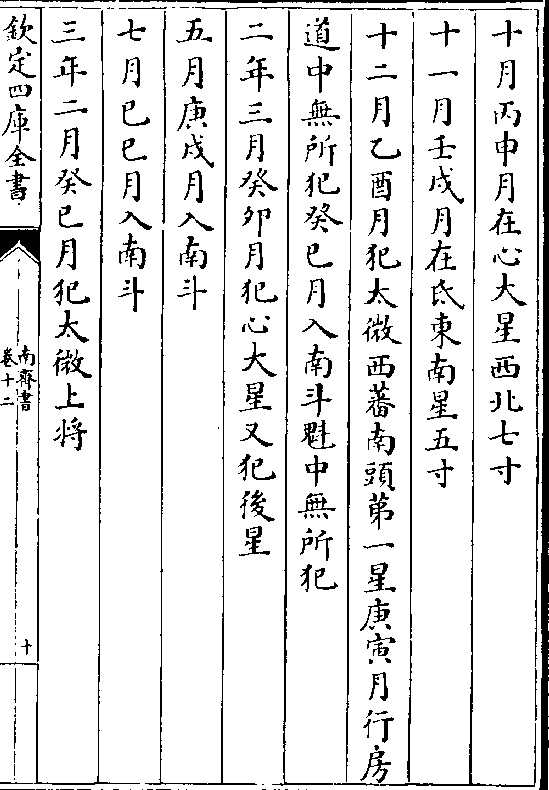 十月丙申月在心大星西北七寸
十一月壬戌月在氐東南星五寸
十二月乙酉月犯太微西蕃南頭第一星庚寅月行房
道中無所犯癸巳月入南斗魁中無所犯
二年三月癸卯月犯心大星又犯後星
五月庚戌月入南斗
七月己巳月入南斗
三年二月癸巳月犯太微上將
欽定四庫全書
南齊書
卷十二
十